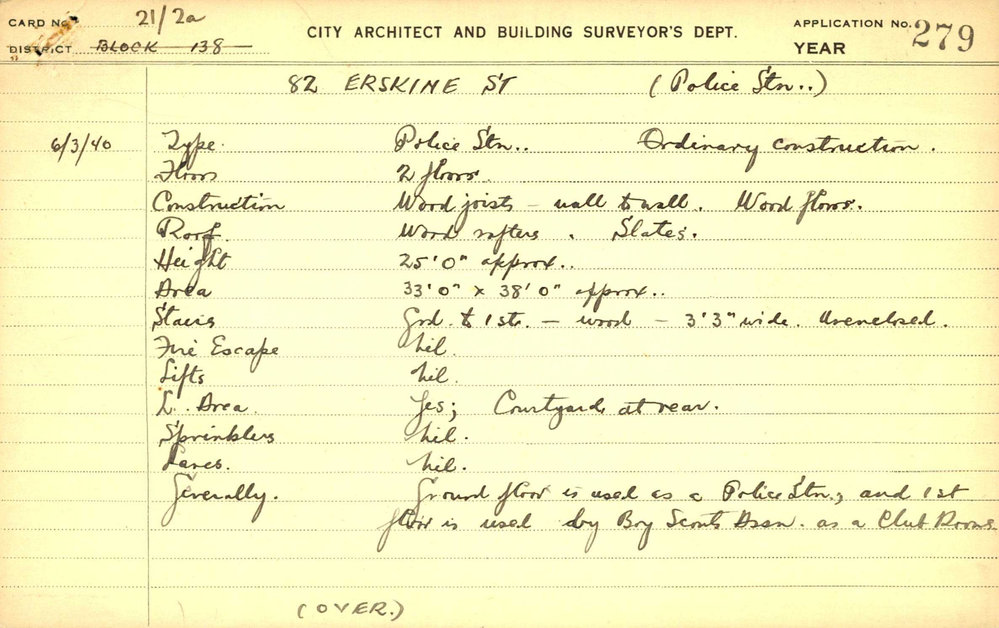 CARD No. 21/2a
CITY ARCHITECT AND BUILDING SURVEYOR'S DEPT.
APPLICATION No. 279
DISTRICT BLOCK 138
YEAR
82 ERSKINE ST (Police Stn..)
6/3/40 Type. Police Stn.. Ordinary construction.
Floors 2 floors.
Construction Wood joists – wall to wall. Wood floors.
Roof. Wood rafters. Slates.
Height 25'0" approx..
Area 33'0" x 38'0" approx..
Stairs Grd. to 1st. – wood – 3'3" wide. Unenclosed.
Fire Escape Nil.
Lifts Nil.
L. Area. Yes; Courtyard at rear.
Sprinklers Nil.
Lanes. Nil.
Generally. Ground floor is used as a Police Stn., and 1st
floor is used by Boy Scouts Assn. as a Club Rooms
(OVER.)